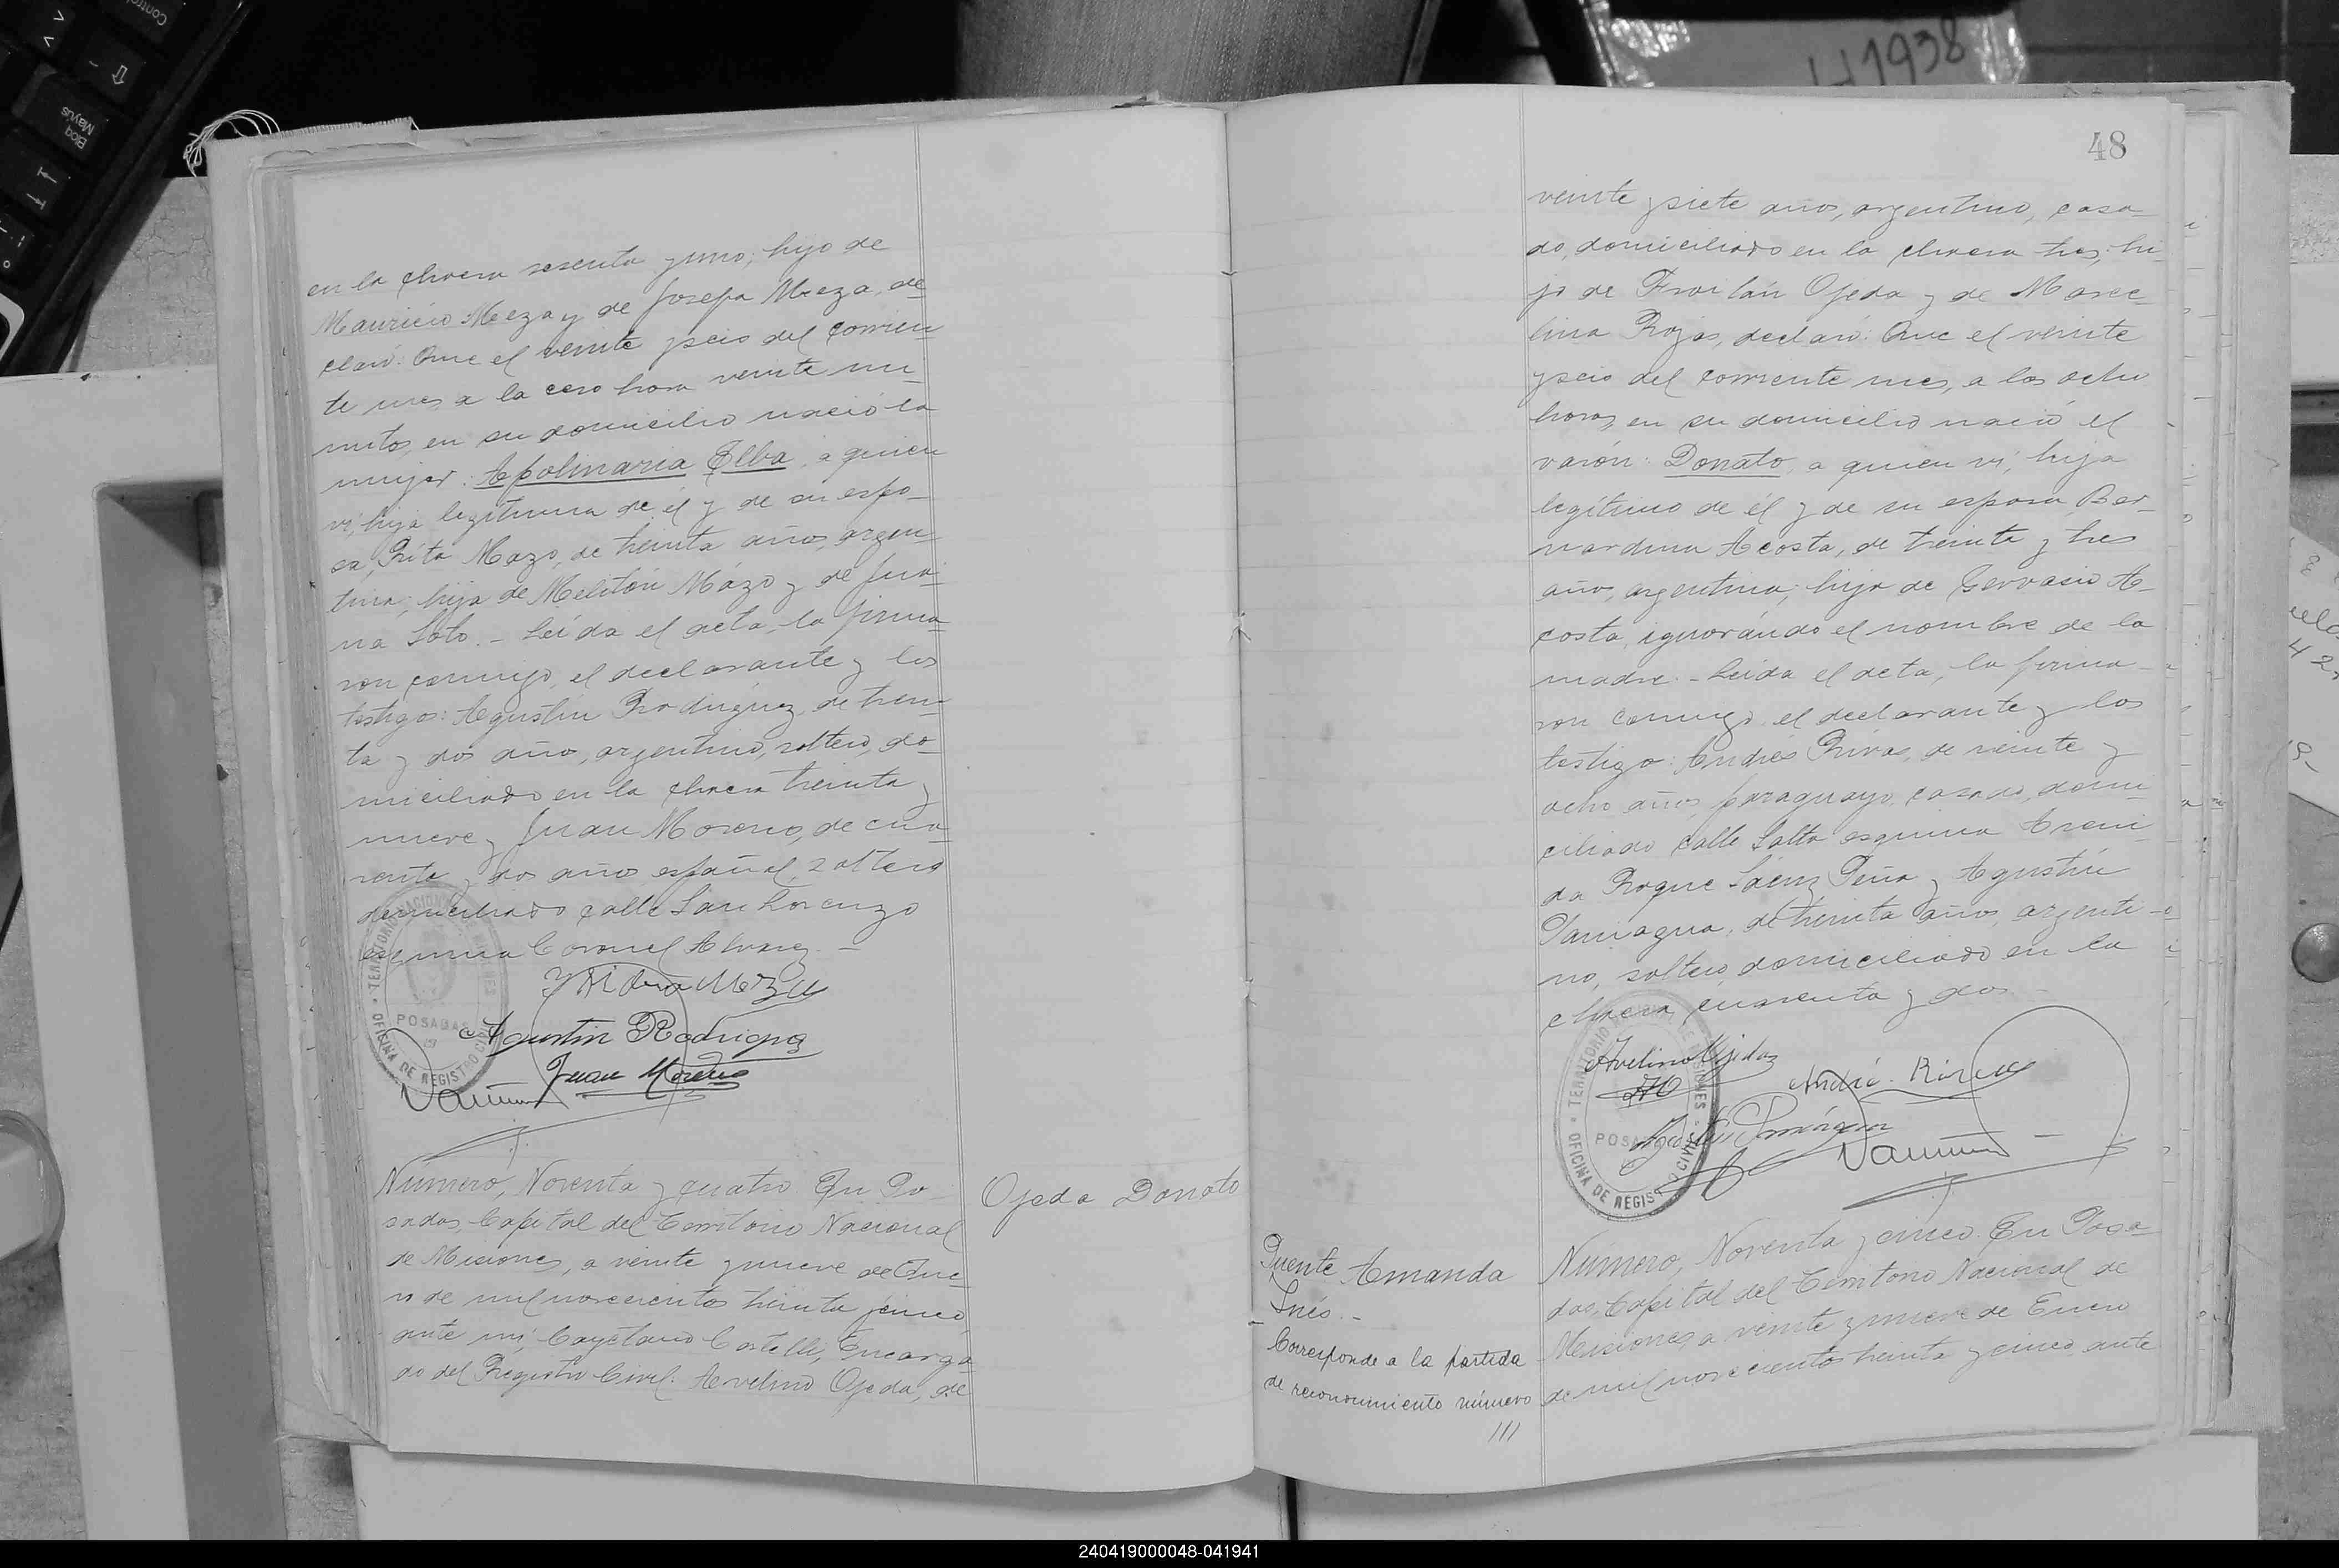 en la chacra sesenta y uno; hijo de
Mauricio Meza y de Josefa Meza, de-
claró: Que el veinte y seis del corrien-
te mes, a la cero hora veinte mi-
nutos, en su domicilio nació la
mujer: Apolinaria Elba, a quien
vi, hija legítima de él y de su espo-
sa, Rita Mazo, de treinta años, argen-
tina; hija de Melitón Mázo y de Jua-
na Soto. - Leída el acta, la firma-
ron conmigo, el declarante y los
testigos: Agustín Rodríguez, de trein-
ta y dos años, argentino, soltero, do-
miciliado en la chacra treinta y
nueve y Juan Moreno, de cua-
renta y dos años, español, soltero
domiciliado calle San Lorenzo
esquina Coronel Alvarez. -
TERRITORIO NACIONAL DE MISIONES
POSADAS
OFICINA DE REGISTRO CIVIL
Meza
Agustin Rodriguez
Juan Moreno
Número, Noventa y cuatro. En Po-
sadas, Capital del Territorio Nacional
de Misiones, a veinte y nueve de Ene-
ro de mil novecientos treinta y cinco,
ante mi, Cayetano Castelli, Encarga-
do del Registro Civil: Avelino Ojeda, de
Ojeda Donato
48
veinte y siete años, argentino, casa-
do, domiciliado en la chacra tres; hi-
jo de Froilán Ojeda y de Marce-
lina Rojas, declaró: Que el veinte
y seis del corriente mes, a las ocho
horas, en su domicilio nació el
varón: Donato, a quien vi, hijo
legítimo de él y de su esposa Ber-
nardina Acosta, de treinta y tres
años, argentina; hija de Gervasio A-
costa, ignorándo el nombre de la
madre. - Leída el acta, la firma-
ron conmigo, el declarante y los
testigos: Andrés Rivas, de veinte y
ocho años, paraguayo, casado, domi-
ciliado calle Salta esquina Aveni-
da Roque Sáenz Peña y Agustín
Paniagua, de treinta años, argenti-
no, soltero, domiciliado en la
chacra cuarenta y dos -
TERRITORIO NACIONAL DE MISIONES
POSADAS
OFICINA DE REGISTRO CIVIL
Avelino Ojeda
Andrés Rivas
Puente Amanda
Inés. -
Corresponde a la partida
de reconocimiento número
111
Número, Noventa y cinco. En Posa-
das, Capital del Territorio Nacional de
Misiones, a veinte y nueve de Enero
de mil novecientos treinta y cinco, ante
H1938
Control
Bloq
Mayus
240419000048-041941